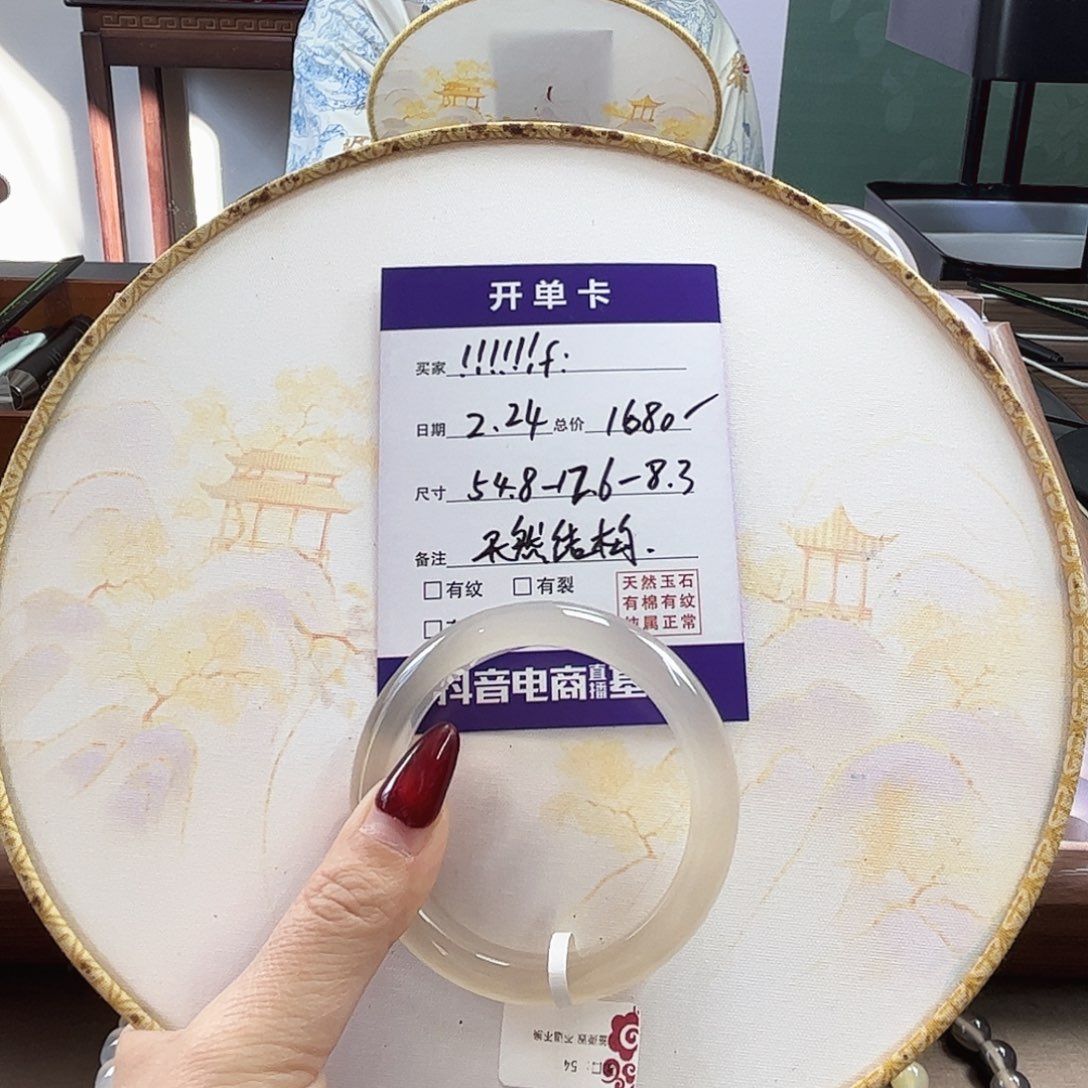 开单卡
买家 !!!!!!f.
日期 2.24 总价 1680
尺寸 54.8-12.6-8.3
备注 天然结构.
□有纹 □有裂
天然玉石
有棉有纹
属正常
抖音电商直播基
口:54